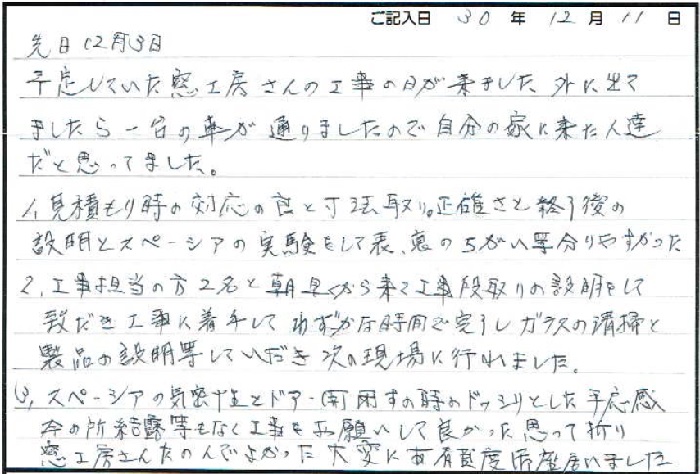 ご記入日 30 年 12 月 11 日
先日12月3日
予定していた窓工房さんの工事の日が来ました 外に出て
ましたら一台の車が通りましたので自分の家に来た人達
だと思ってました。
1、見積もり時の対応の良と寸法取り。正確さと終了後の
説明とスペーシアの実験をして表、裏のちがい等分りやすかった
2、工事担当の方2名と朝早くから来て工事段取りの説明をして
頂だき工事に着手してわずかな時間で完了しガラスの清掃と
製品の説明等していただき次の現場に行かれました。
3、スペーシアの気密性とドアー開閉すの時のドッシリとした手応感
今の所結露等もなく工事をお願いして良かった思って折り
窓工房さんたのんでよかった大変に有